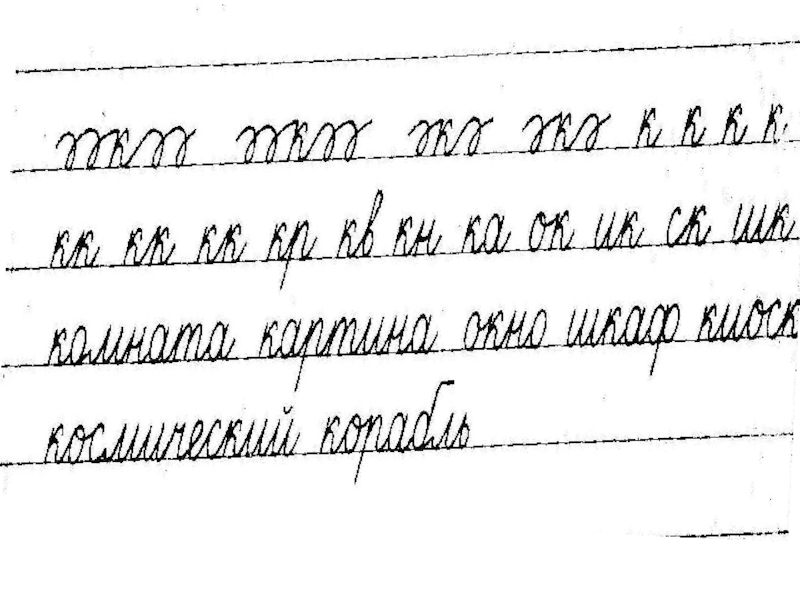 к к к к к к к к
кк кк кк кр кв кн ка ок ик ск шк
комната картина окно шкаф киоск
космический корабль